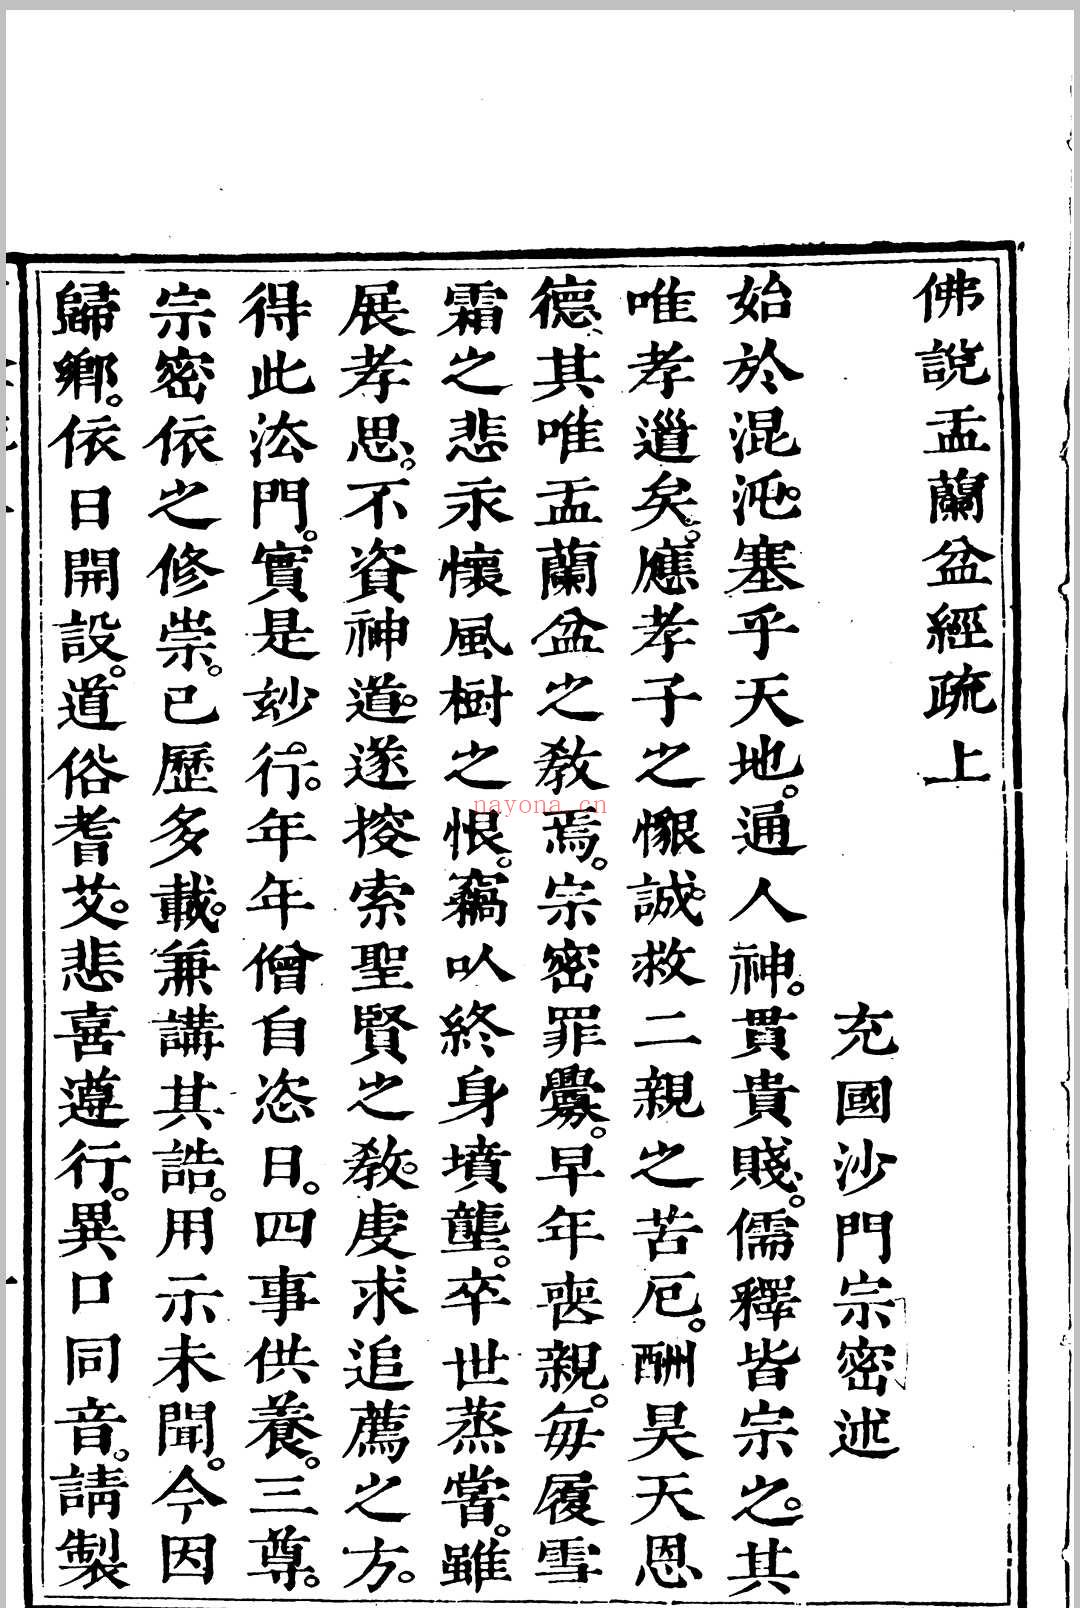 佛說盂蘭盆經疏上
充國沙門宗密述
始於混沌。塞乎天地。通人神。貫貴賤。儒釋皆宗之。其
唯孝道矣。應孝子之懇誠。救二親之苦厄。酬昊天恩
德、其唯盂蘭盆之教焉。宗密罪釁。早年喪親。每履雪
霜之悲永懷風樹之恨。竊以終身墳壟。卒世蒸嘗。雖
展孝思。不資神道。遂搜索聖賢之教。虔求追薦之方。
得此法門。實是玅行。年年僧自恣日。四事供養。三尊。
宗密依之修崇。已歷多載。兼講其誥。用示未聞。今因
歸鄉。依日開設。道俗耆艾。悲喜遵行。異口同音。請製
nayona.cn